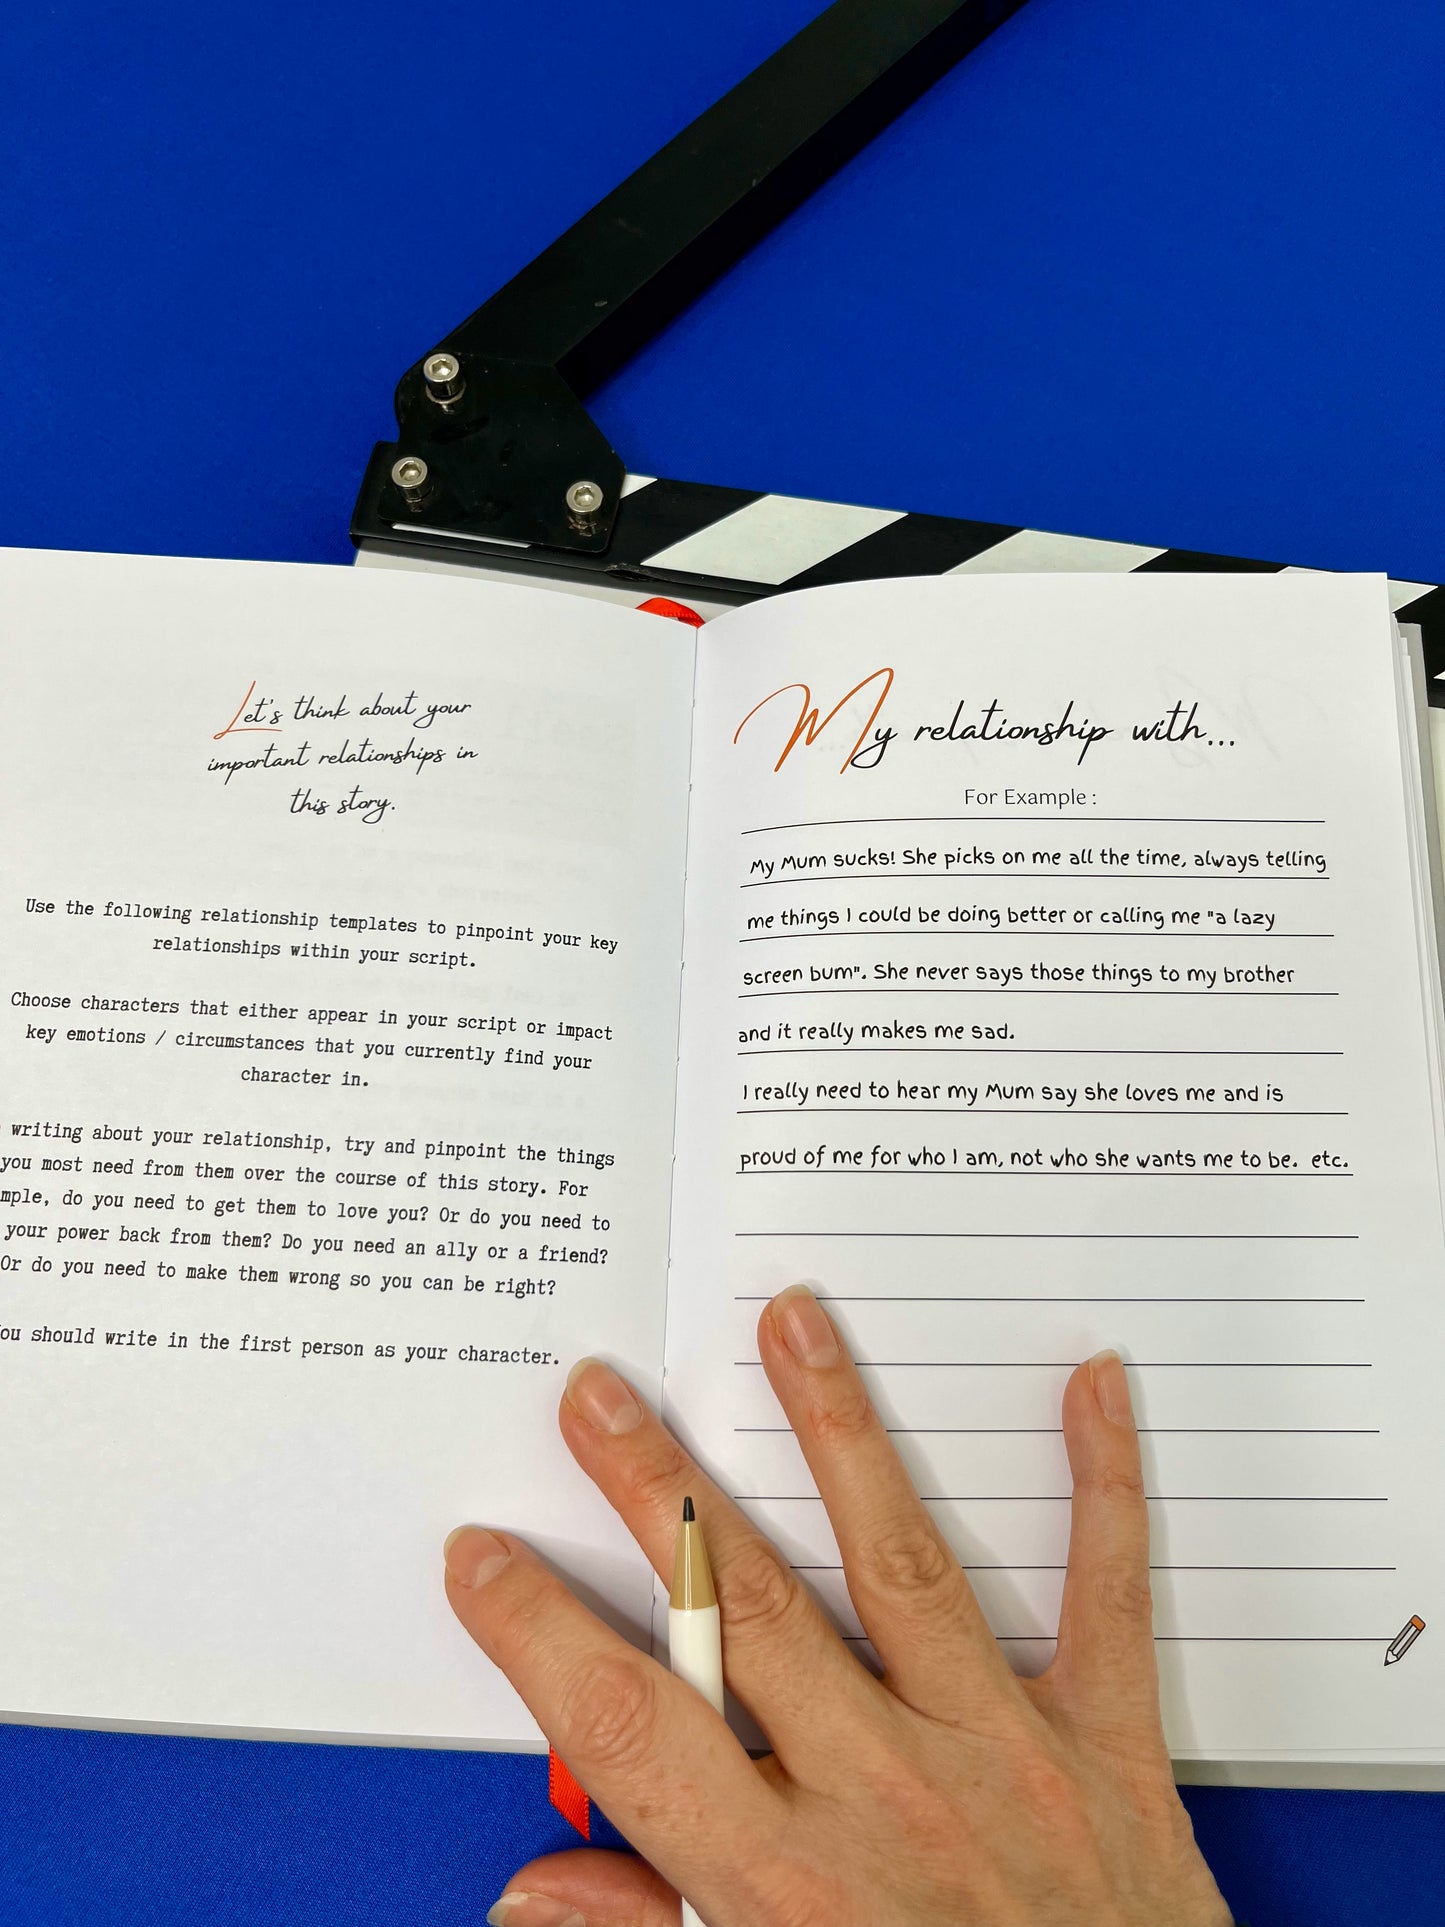 Let's think about your
important relationships in
this story.
Use the following relationship templates to pinpoint your key
relationships within your script.
Choose characters that either appear in your script or impact
key emotions / circumstances that you currently find your
character in.
writing about your relationship, try and pinpoint the things
you most need from them over the course of this story. For
mple, do you need to get them to love you? Or do you need to
your power back from them? Do you need an ally or a friend?
Or do you need to make them wrong so you can be right?
ou should write in the first person as your character.
My relationship with...
For Example :
My Mum sucks! She picks on me all the time, always telling
me things I could be doing better or calling me "a lazy
screen bum". She never says those things to my brother
and it really makes me sad.
I really need to hear my Mum say she loves me and is
proud of me for who I am, not who she wants me to be. etc.